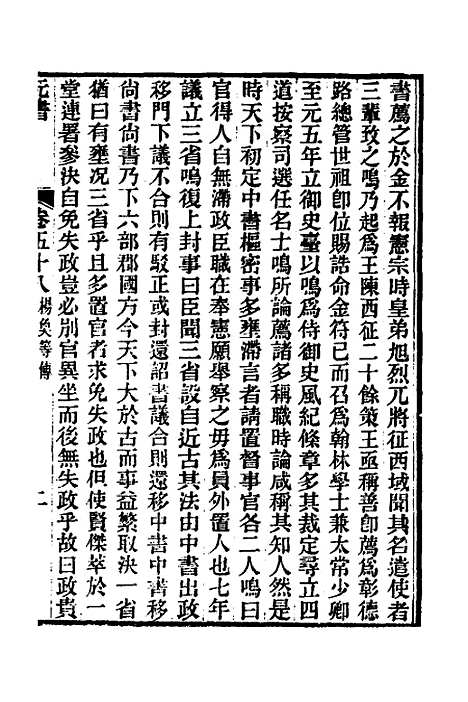 書薦之於金不報憲宗時皇弟旭烈兀將征西域聞其名遣使者
三輩致之鳴乃起爲王陳西征二十餘策王亟稱善卽薦爲彰德
路總管世祖卽位賜誥命金符已而召爲翰林學士兼太常少卿
至元五年立御史臺以鳴爲侍御史風紀條章多其裁定尋立四
道按察司選任名士鳴所論薦諸多稱職時論咸稱其知人然是
時天下初定中書樞密事多壅滯言者請置督事官各二人鳴曰
官得人自無滯政臣職在奉憲願舉察之毋爲員外置人也七年
議立三省鳴復上封事曰臣聞三省設自近古其法由中書出政
移門下議不合則有駁正或封還詔書議合則還移中書中書移
尙書尙書乃下六部郡國方今天下大於古而事益繁取決一省
猶曰有壅況三省乎且多置官者求免失政也但使賢傑萃於一
堂連署參決自免失政豈必別官異坐而後無失政乎故曰政貴
元書 卷五十八 楊奐等傳 二